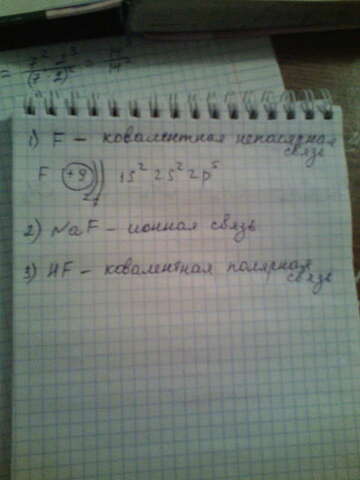 1) F – ковалентная неполярная
связь
F +9 1s² 2s² 2p⁵
2 7
2) NaF – ионная связь
3) HF – ковалентная полярная
связь